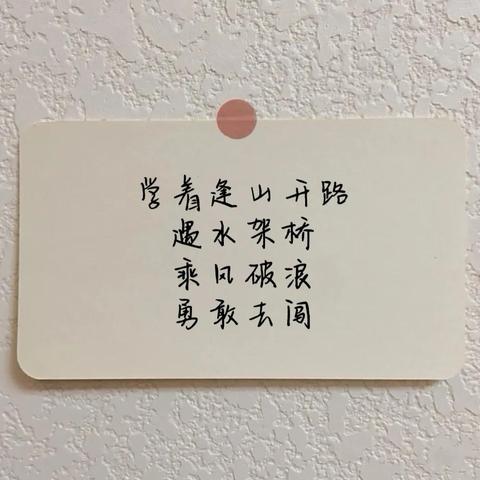 学着逢山开路
遇水架桥
乘风破浪
勇敢去闯